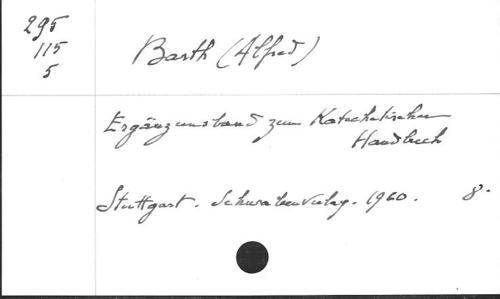 295
115
5
Barth (Alfred)
Ergänzunsband zum Katechetischen
Handbuch
Stuttgart. Schwabenverlag. 1960. 8°